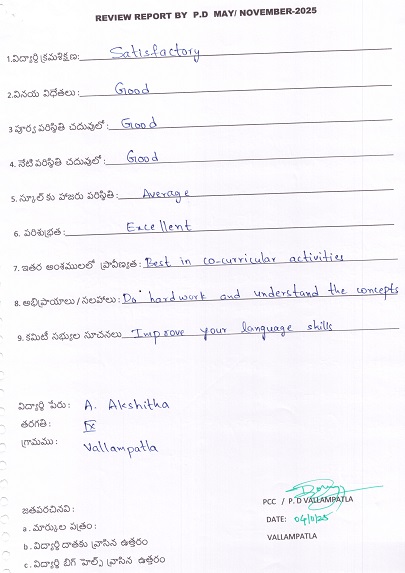 REVIEW REPORT BY P.D MAY/ NOVEMBER-2025
1.విద్యార్థి క్రమశిక్షణ: Satisfactory
2.వినయ విధేతలు: Good
3 పూర్వ పరిస్థితి చదువులో : Good
4. నేటి పరిస్థితి చదువులో: Good
5. స్కూల్ కు హాజరు పరిస్థితి: Average
6. పరిశుభ్రత: Excellent
7. ఇతర అంశములలో ప్రావీణ్యత: Best in co-curricular activities
8. అభిప్రాయాలు / సలహాలు: Do hardwork and understand the concepts
9. కమిటీ సభ్యుల సూచనలు Improve your language skills
విద్యార్థి పేరు: A. Akshitha
తరగతి: IX
గ్రామము: Vallampatla
PCC / P.D VALLAMPATLA
జతపరచినవి:
DATE: 04/11/25
a. మార్కుల పత్రం:
VALLAMPATLA
b. విద్యార్థి దాతకు వ్రాసిన ఉత్తరం
c. విద్యార్థి బిగ్ హెల్ప్ వ్రాసిన ఉత్తరం